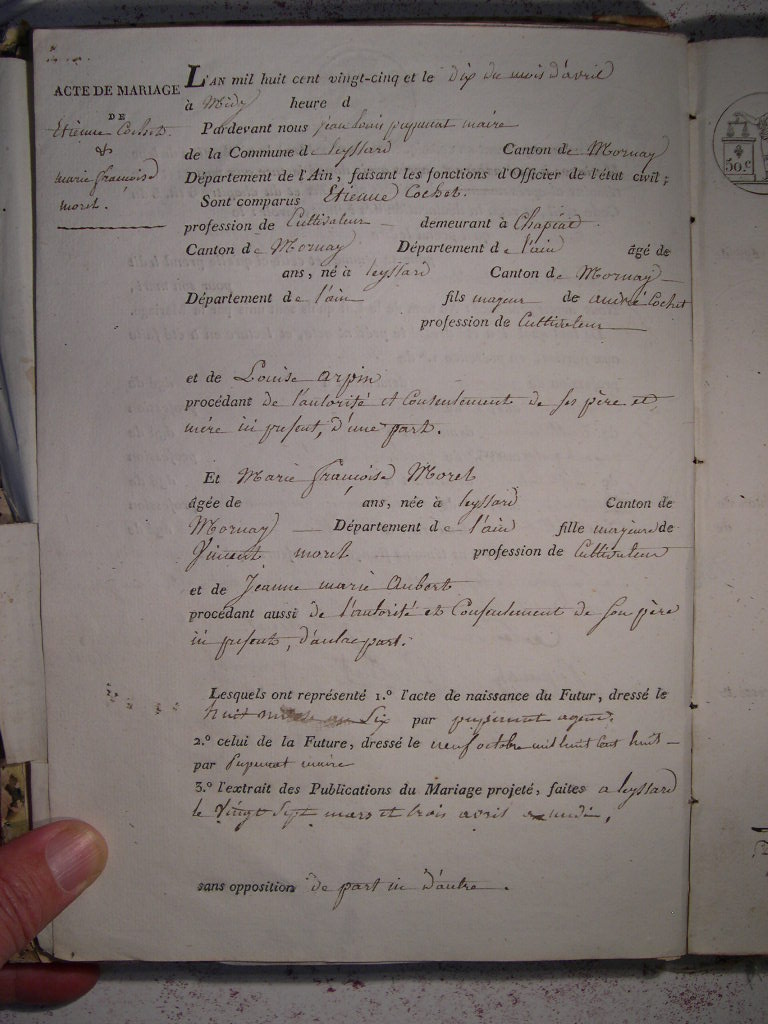 ACTE DE MARIAGE
DE
Etienne Cochet.
&
marie françoise
moret.
L'AN mil huit cent vingt-cinq et le dix du mois d'avril
à Midy heure d
Pardevant nous jean louis pupunat maire
de la Commune de leyssard Canton de Mornay
Département de l'Ain, faisant les fonctions d'Officier de l'état civil;
Sont comparus Etienne Cochet.
profession de Cultivateur demeurant à Chapiat
Canton de Mornay Département de l'ain âgé de
ans, né à leyssard Canton de Mornay
Département de l'ain fils majeur de andré Cochet
profession de Cultivateur
et de Louise arpin
procédant de l'autorité et Consentement de ses père et
mère ici présent, d'une part.
Et Marie françoise Moret
âgée de ans, née à leyssard Canton de
Mornay Département de l'ain fille majeure de
Vincent moret profession de Cultivateur
et de Jeanne marie Aubert
procédant aussi de l'autorité et Consentement de son père
ici présent, d'autre part.
Lesquels ont représenté 1.º l'acte de naissance du Futur, dressé le
huit an Six par pupunat agent.
2.º celui de la Future, dressé le neuf octobre mil huit Cent huit
par Pupunat maire
3.º l'extrait des Publications du Mariage projeté, faites a leyssard
le Vingt Sept mars et trois avril a midi,
sans opposition de part ni d'autre.
50.c